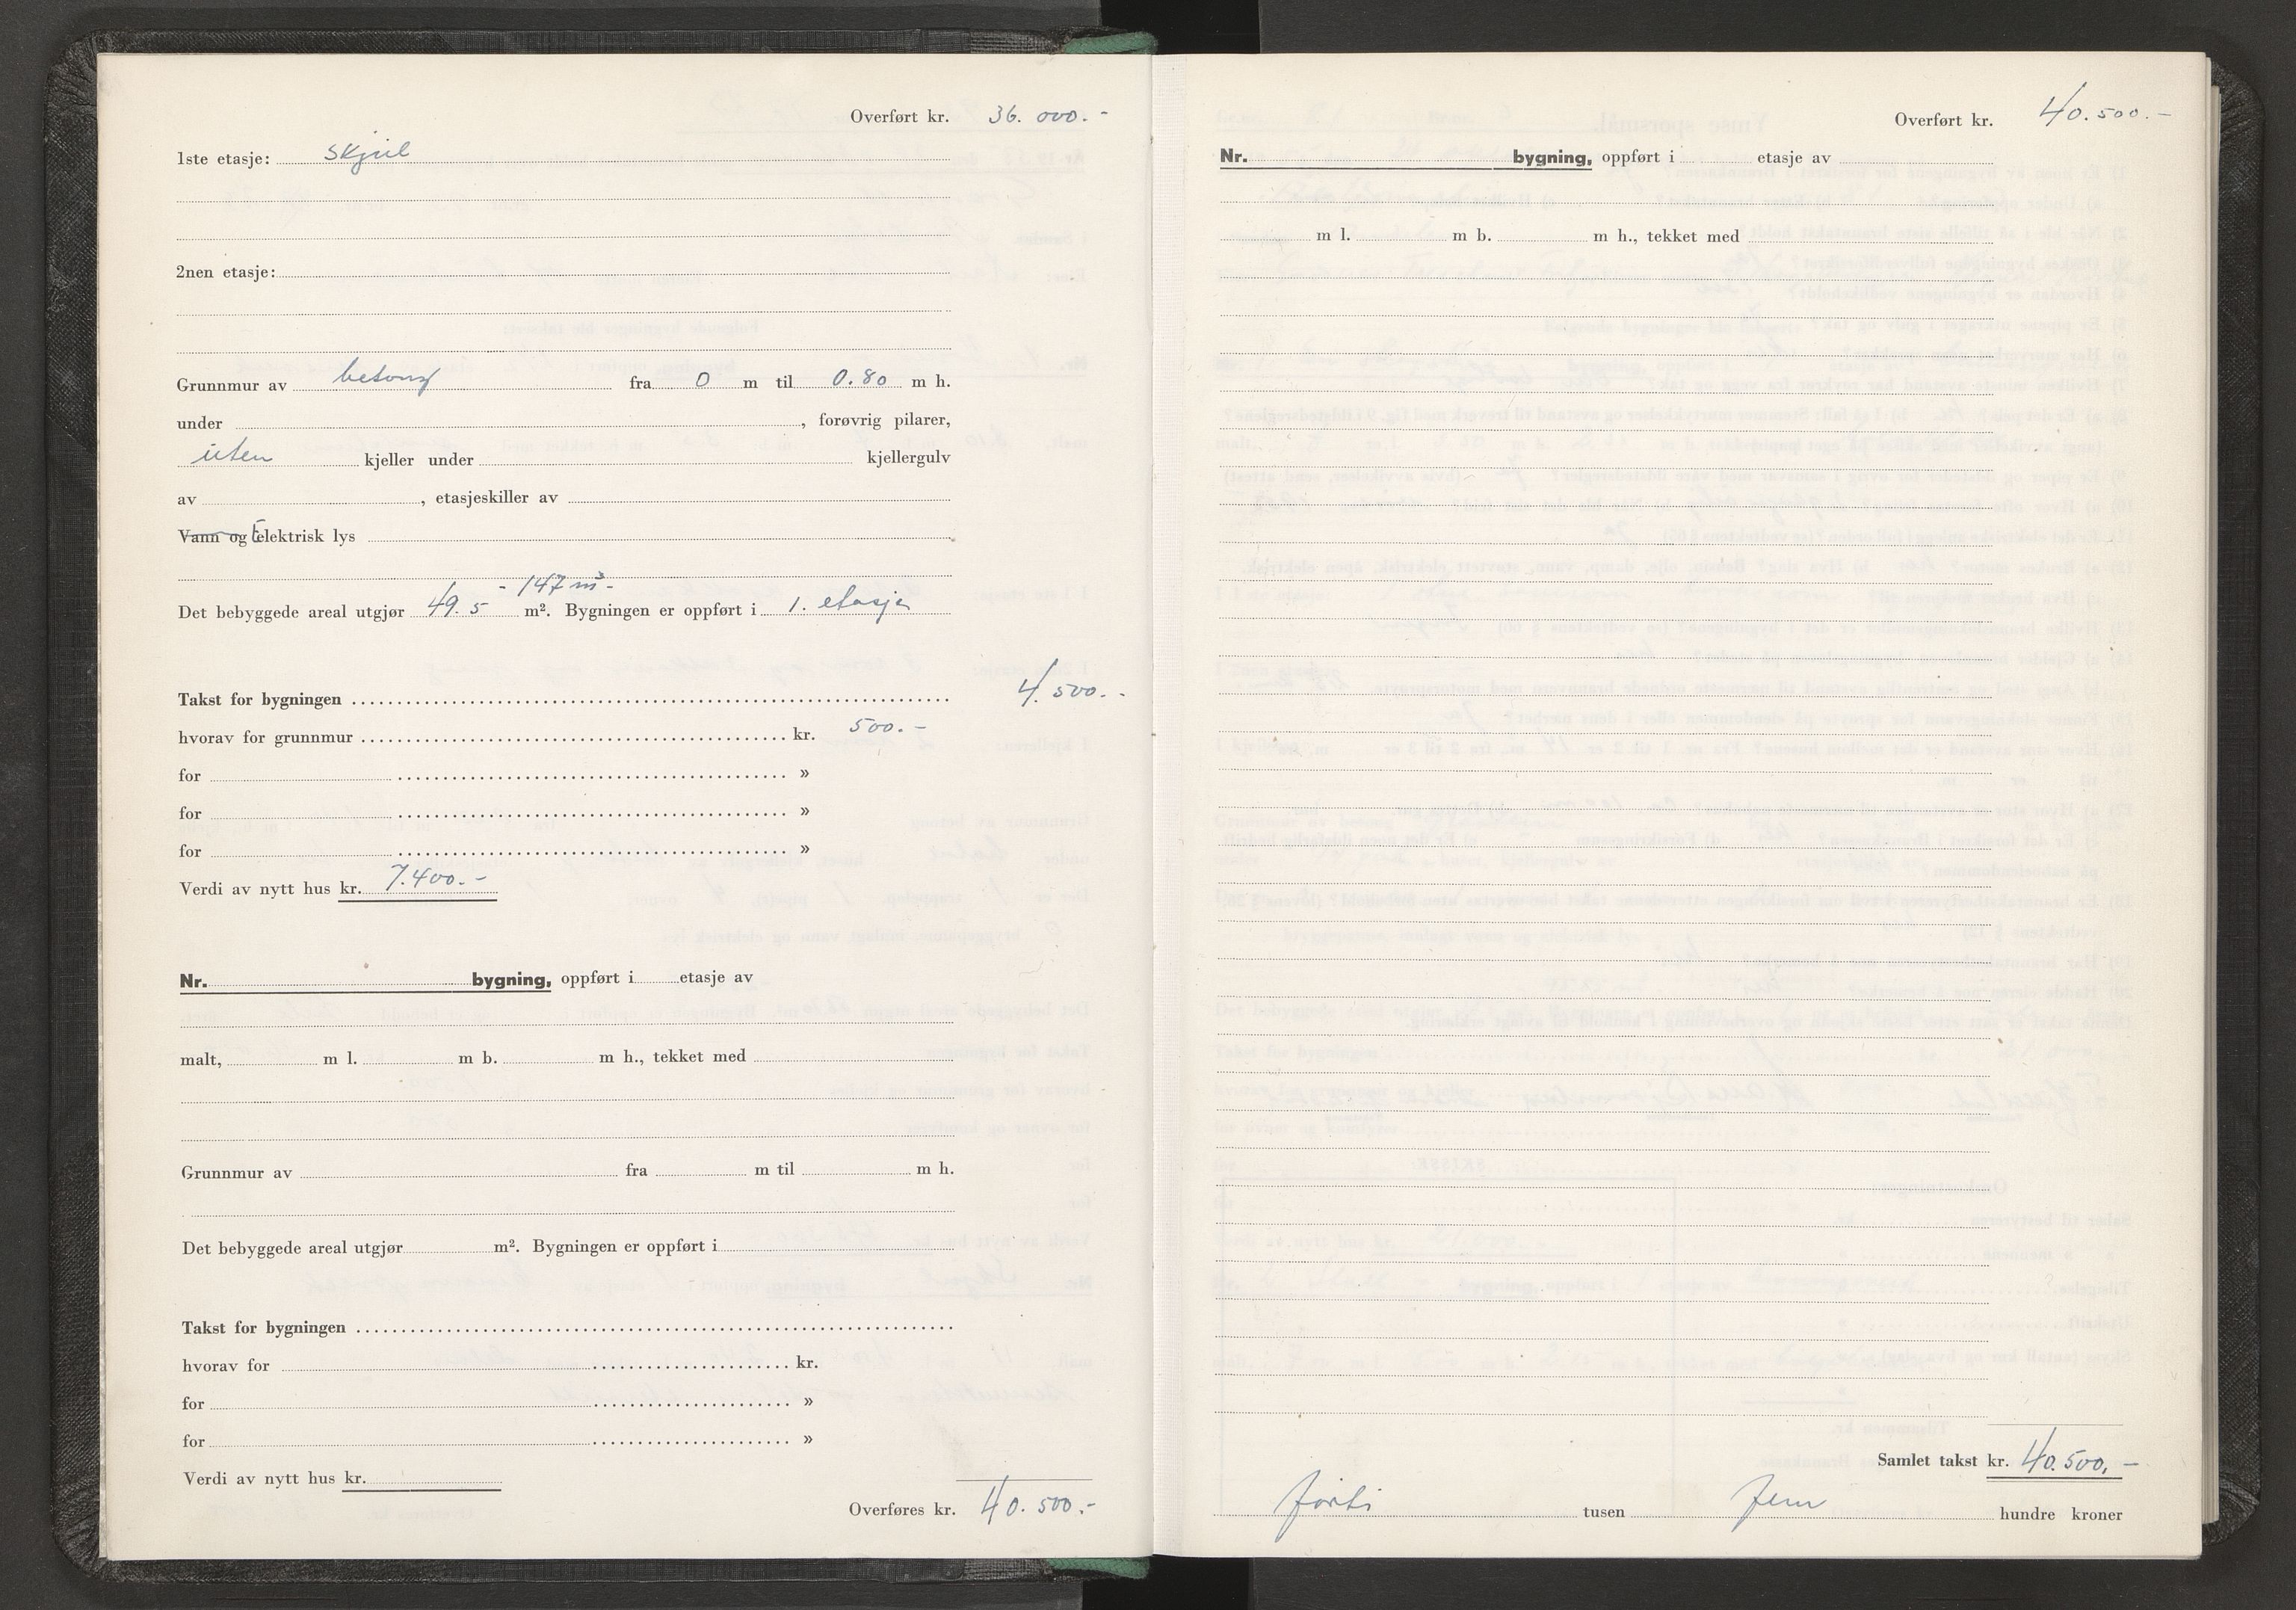 Overført kr. 36.000.-
1ste etasje: skjul
2nen etasje:
Grunnmur av betong fra 0 m til 0.80 m h.
under , forøvrig pilarer,
uten kjeller under kjellergulv
av , etasjeskiller av
Vann og Elektrisk lys
- 147 m³ -
Det bebyggede areal utgjør 49.5 m². Bygningen er oppført i 1. etasje
Takst for bygningen 4.500.-
hvorav for grunnmur kr. 500.-
for »
for »
for »
Verdi av nytt hus kr. 7.400.-
Nr. bygning, oppført i etasje av
malt, m l. m b. m h., tekket med
Grunnmur av fra m til m h.
Det bebyggede areal utgjør m². Bygningen er oppført i
Takst for bygningen
hvorav for kr.
for »
for »
Verdi av nytt hus kr.
Overføres kr. 40.500.-
Overført kr. 40.500.-
Nr. bygning, oppført i etasje av
m l. m b. m h., tekket med
Samlet takst kr. 40.500,-
førti tusen fem hundre kroner